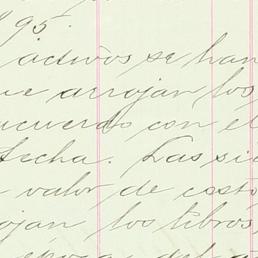 95.
activos se han
que arrojan los
acuerdo con el
fecha. Las si
valor de costo
ojan los libros,